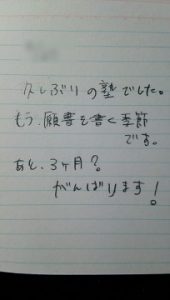 久しぶりの塾でした。
もう、願書を書く季節
です。
あと、3ヶ月?
がんばります!